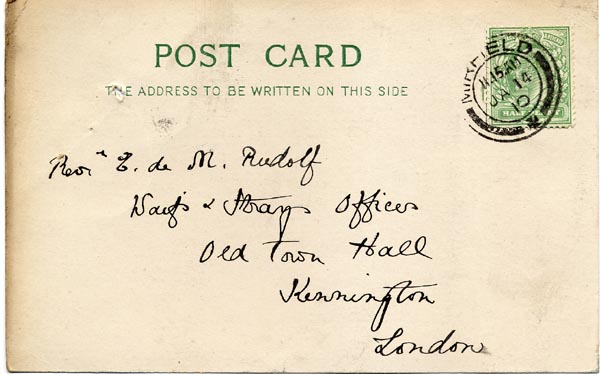 POST CARD
THE ADDRESS TO BE WRITTEN ON THIS SIDE
MIRFIELD
11.15 AM
14
10
HALF
Revd. E. de M. Rudolf
Waifs & Strays Offices
Old Town Hall
Kennington
London